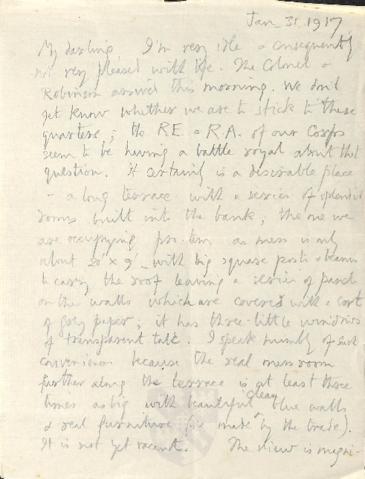 Jan 31. 1917
My darling I'm very idle & consequently
not very pleased with life. The Colonel &
Robinson arrived this morning. We don't
yet know whether we are to stick to these
quarters; the RE & RA. of our Corps
seem to be having a battle royal about that
question. It certainly is a desirable place
- a long terrace with a series of splendid
rooms built into the bank; the one we
are occupying pro. tem. as mess is only
about 20' x 9' - with big square posts & beams
to carry the roof leaving a series of panels
on the walls which are covered with a sort
of grey paper; it has three little windows
of transparent talc. I speak humbly of such
convenience because the real mess room
further along the terrace is at least three
times as big with beautiful clean blue walls
& real furniture (i.e. made by the trade).
It is not yet vacant. The view is magni-